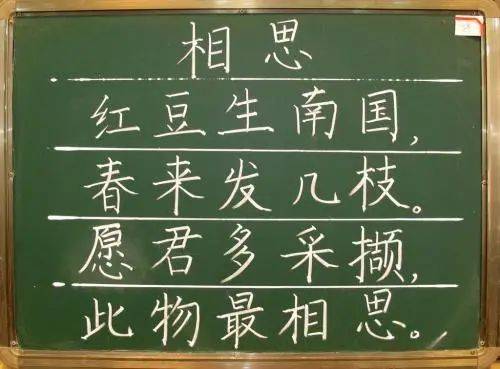 相思
红豆生南国,
春来发几枝。
愿君多采撷,
此物最相思。